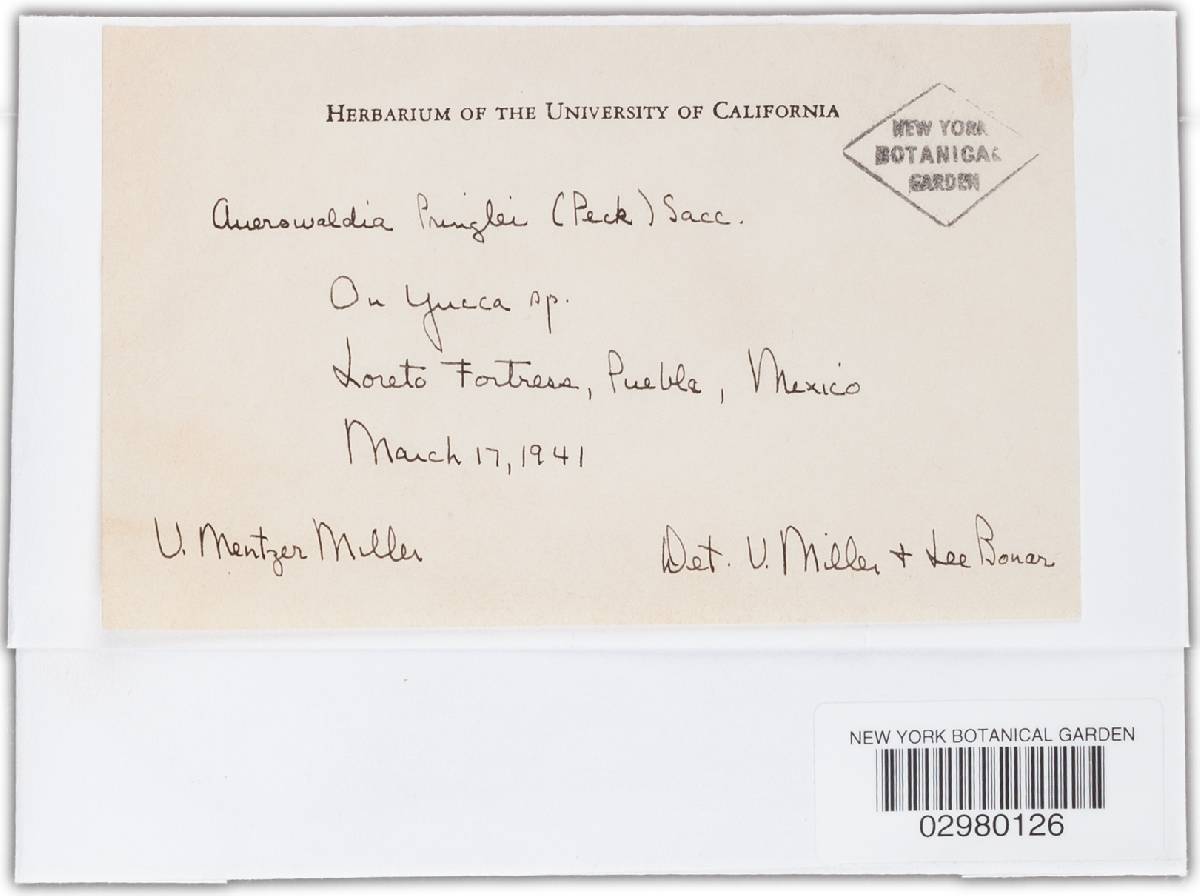 HERBARIUM OF THE UNIVERSITY OF CALIFORNIA
NEW YORK
BOTANICAL
GARDEN
Auerswaldia Pringlei (Peck) Sacc.
On Yucca sp.
Loreto Fortress, Puebla, Mexico
March 17, 1941
V. Mentzer Miller
Det. V. Miller + Lee Bonar
NEW YORK BOTANICAL GARDEN
02980126